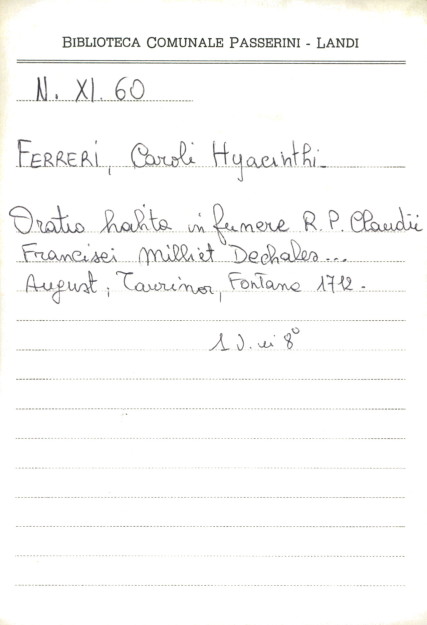 BIBLIOTECA COMUNALE PASSERINI - LANDI
N. XI. 60
FERRERI, Caroli Hyacinthi_
Oratio habita in funere R. P. Claudii
Francisci Milliet Dechales...
August; Taurinor, Fontana 1712.
1 v. in 8°